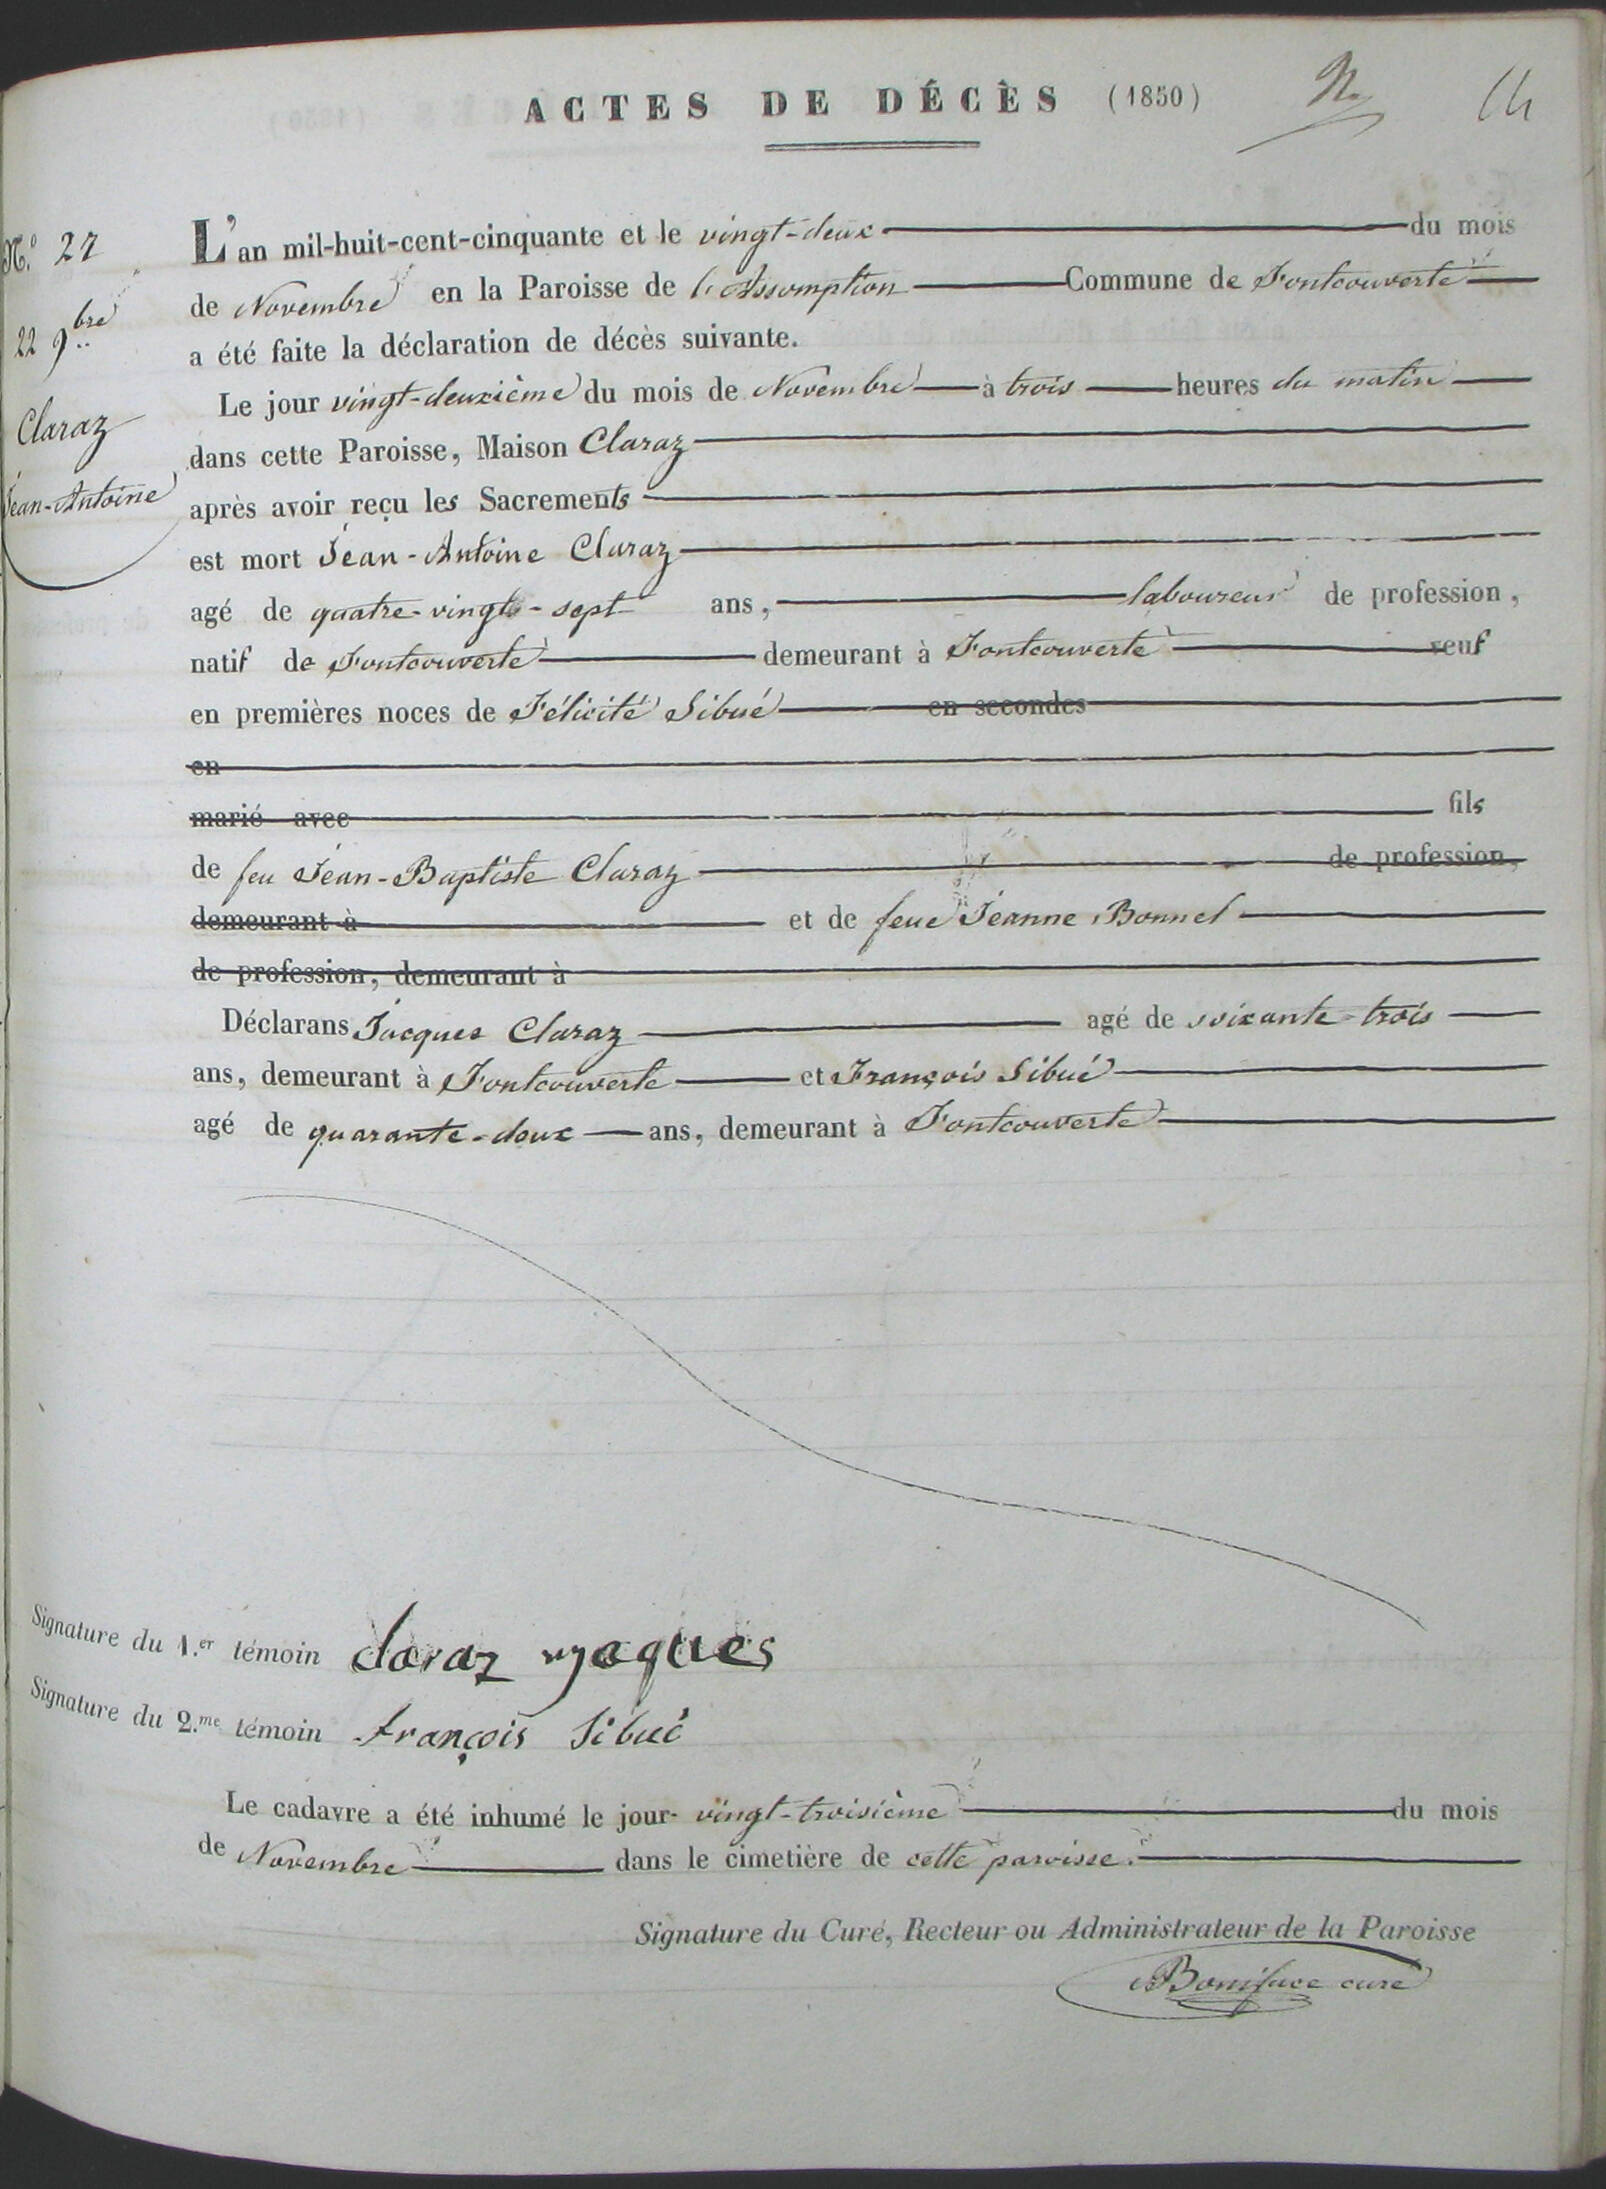 ACTES DE DÉCÈS (1850)
14
N.º 27
22 9bre
Claraz
Jean-Antoine
L'an mil-huit-cent-cinquante et le vingt-deux du mois
de Novembre en la Paroisse de l'Assomption Commune de Fontcouverte
a été faite la déclaration de décès suivante.
Le jour vingt-deuxième du mois de Novembre à trois heures du matin
dans cette Paroisse, Maison Claraz
après avoir reçu les Sacrements
est mort Jean-Antoine Claraz
agé de quatre-vingts-sept ans, laboureur de profession,
natif de Fontcouverte demeurant à Fontcouverte veuf
en premières noces de Félicité Sibué en secondes
en
marié avec fils
de feu Jean-Baptiste Claraz de profession,
demeurant à et de feue Jeanne Bonnel
de profession, demeurant à
Déclarans Jacques Claraz agé de soixante-trois
ans, demeurant à Fontcouverte et François Sibué
agé de quarante-deux ans, demeurant à Fontcouverte
Signature du 1.er témoin claraz jaques
Signature du 2.me témoin françois Sibué
Le cadavre a été inhumé le jour vingt-troisième du mois
de Novembre dans le cimetière de cette paroisse.
Signature du Curé, Recteur ou Administrateur de la Paroisse
Boniface curé